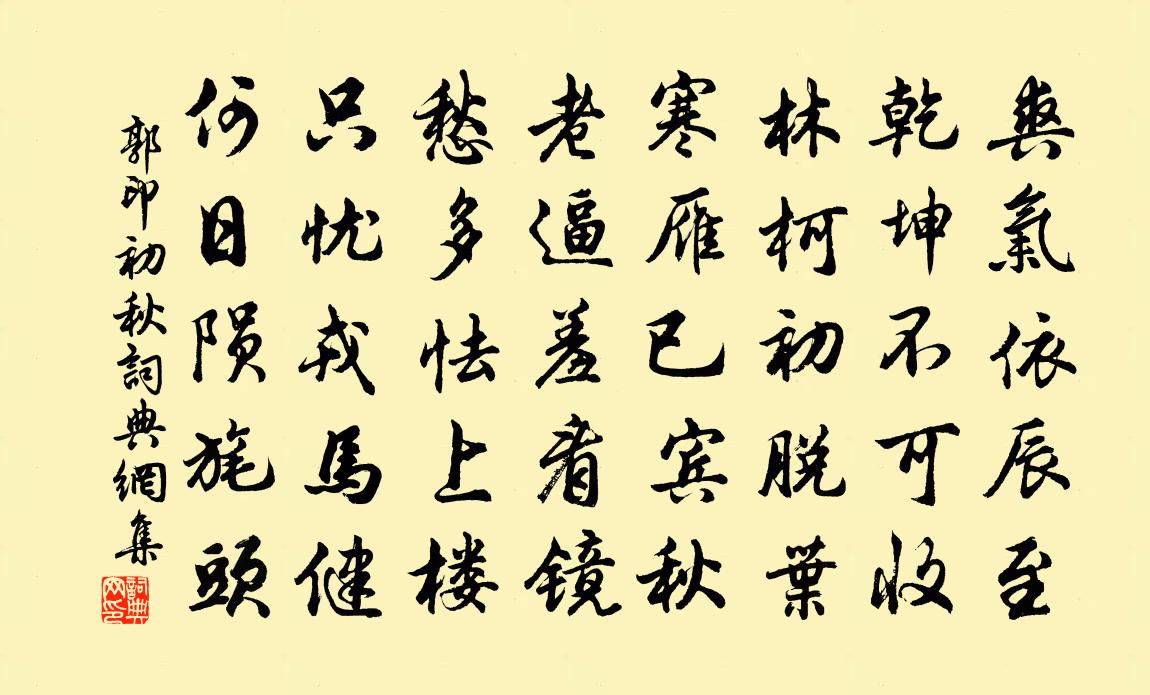 爽氣依辰至
乾坤不可收
林柯初脱葉
寒雁已宾秋
老逼羞看镜
愁多怯上楼
只忧戎馬健
何日陨旄頭
郭印初秋詞典網集
詞典网印